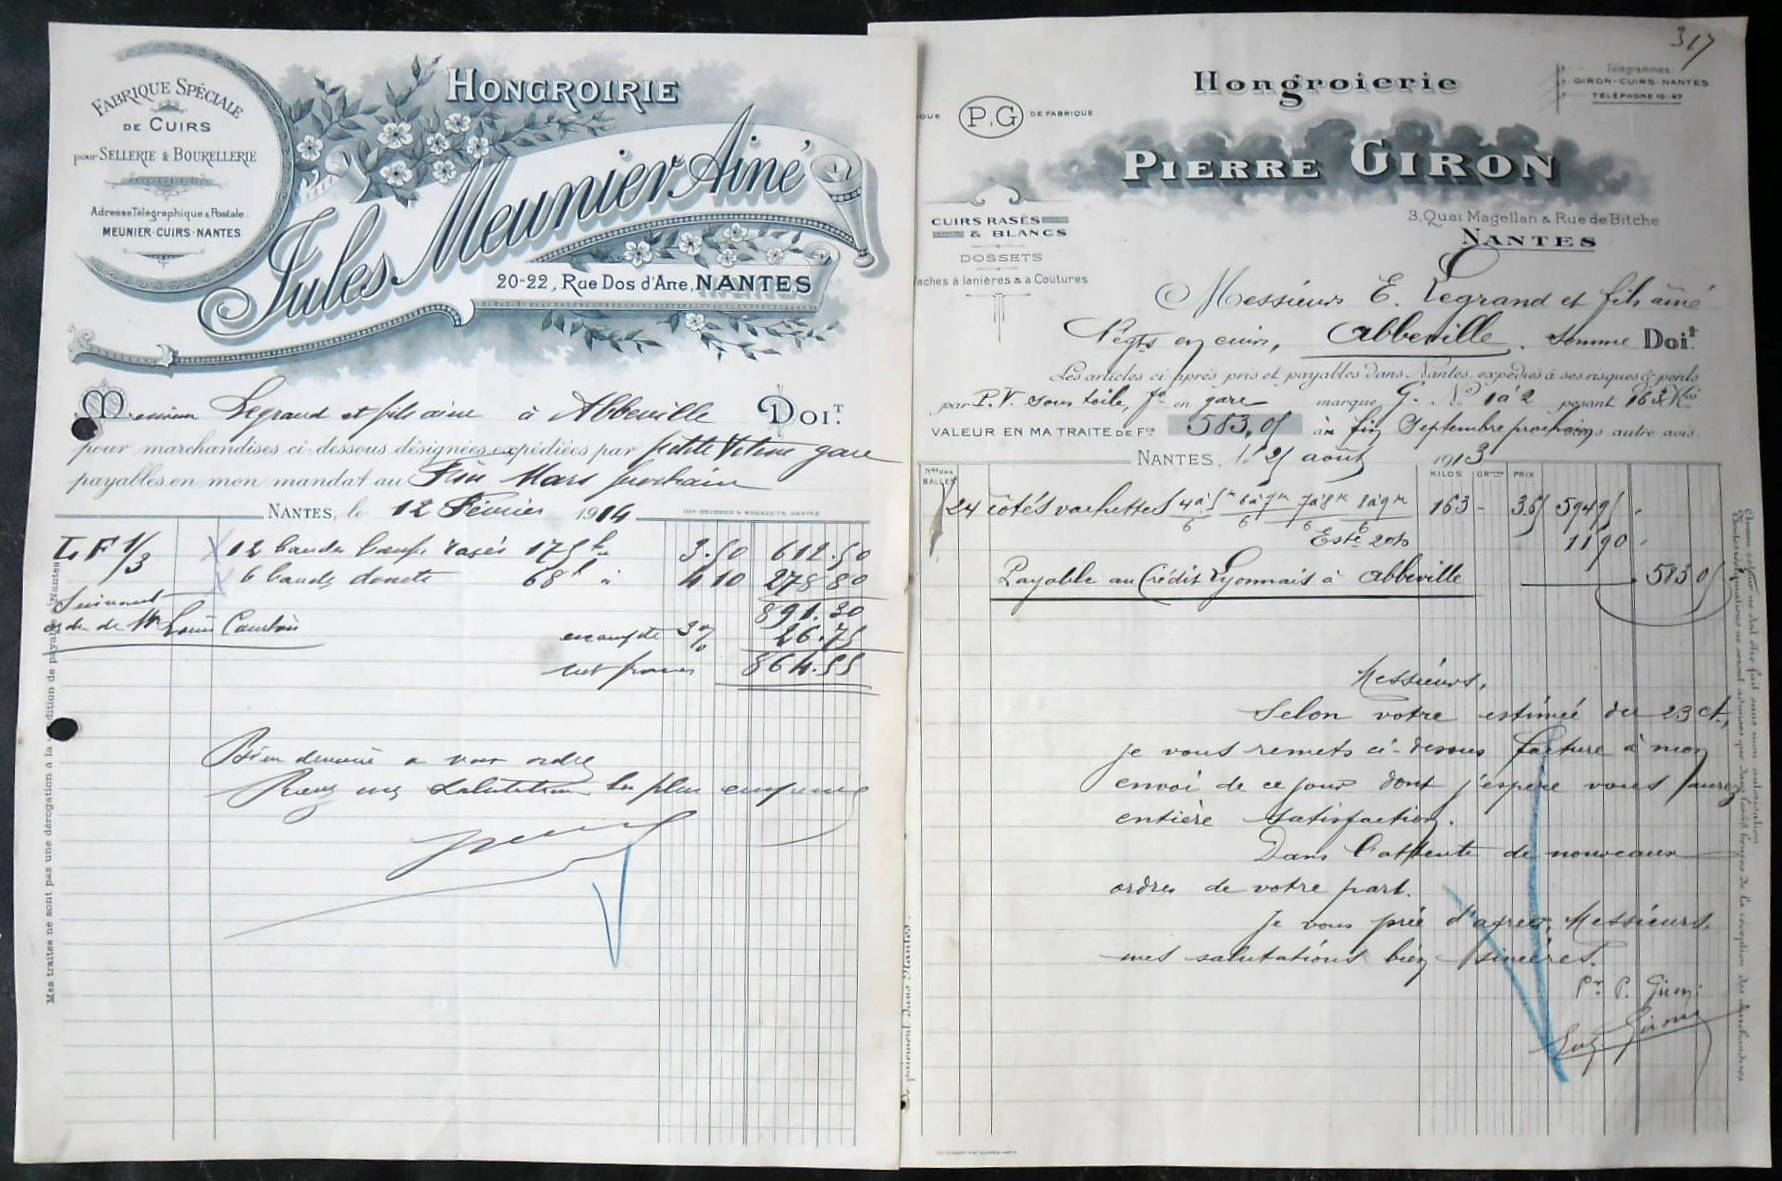 FABRIQUE SPÉCIALE
DE CUIRS
pour SELLERIE & BOURELLERIE
Adresse Télégraphique & Postale:
MEUNIER-CUIRS-NANTES
HONGROIRIE
Jules Meunier Ainé
20-22, Rue Dos d'Ane, NANTES
Messieurs Legrand et fils ainé à Abbeville DOIT.
pour marchandises ci-dessous désignées expédiées par petite Vitesse gare
payables en mon mandat au Fin Mars prochain
NANTES, le 12 Février 1914
LF 1/3 X 12 bandes boeufs rasés 175 k 3.50 612.50
X 6 bandes 68 k 4 10 278 80
Suivant 891.30
ordre de Mr Louis escompte 3% 26.75
net francs 864.55
Bien dévoué à vos ordres
Recevez mes salutations les plus
Mes traites ne sont pas une dérogation à la condition de payable à Nantes
317
Hongroierie
Télégrammes:
GIRON-CUIRS-NANTES
TÉLÉPHONE 10-47
P.G DE FABRIQUE
PIERRE GIRON
CUIRS RASÉS
& BLANCS
DOSSETS
Vaches à lanières & à Coûtures
3, Quai Magellan & Rue de Bitche
NANTES
Messieurs E. Legrand et fils aîné
Négts en cuirs, Abbeville. Somme Doit
Les articles ci après pris et payables dans Nantes, expédiés à ses risques & périls
par P.V. sous toile, fo en gare marque G. No 1 à 2 pesant 163 Kos
VALEUR EN MA TRAITE DE Fcs 583,05 à fin Septembre prochain sans autre avis.
NANTES, le 25 août 1913
Nos des BALLES KILOS PRIX
24 côtés vachettes 4 à 5k 6 à 7k 7 à 8k 8 à 9k 163 - 365 594 95
6 6 6 6
Escte 2% 11 90
Payable au Crédit Lyonnais à Abbeville 583 05
Messieurs,
Selon votre estimée du 23 ct,
je vous remets ci-dessus facture à mon
envoi de ce jour dont j'espère vous aurez
entière satisfaction.
Dans l'attente de nouveaux
ordres de votre part.
Je vous prie d'agréer, Messieurs,
mes salutations bien sincères.
Pr P. Giron:
Giron
de paiement dans Nantes.